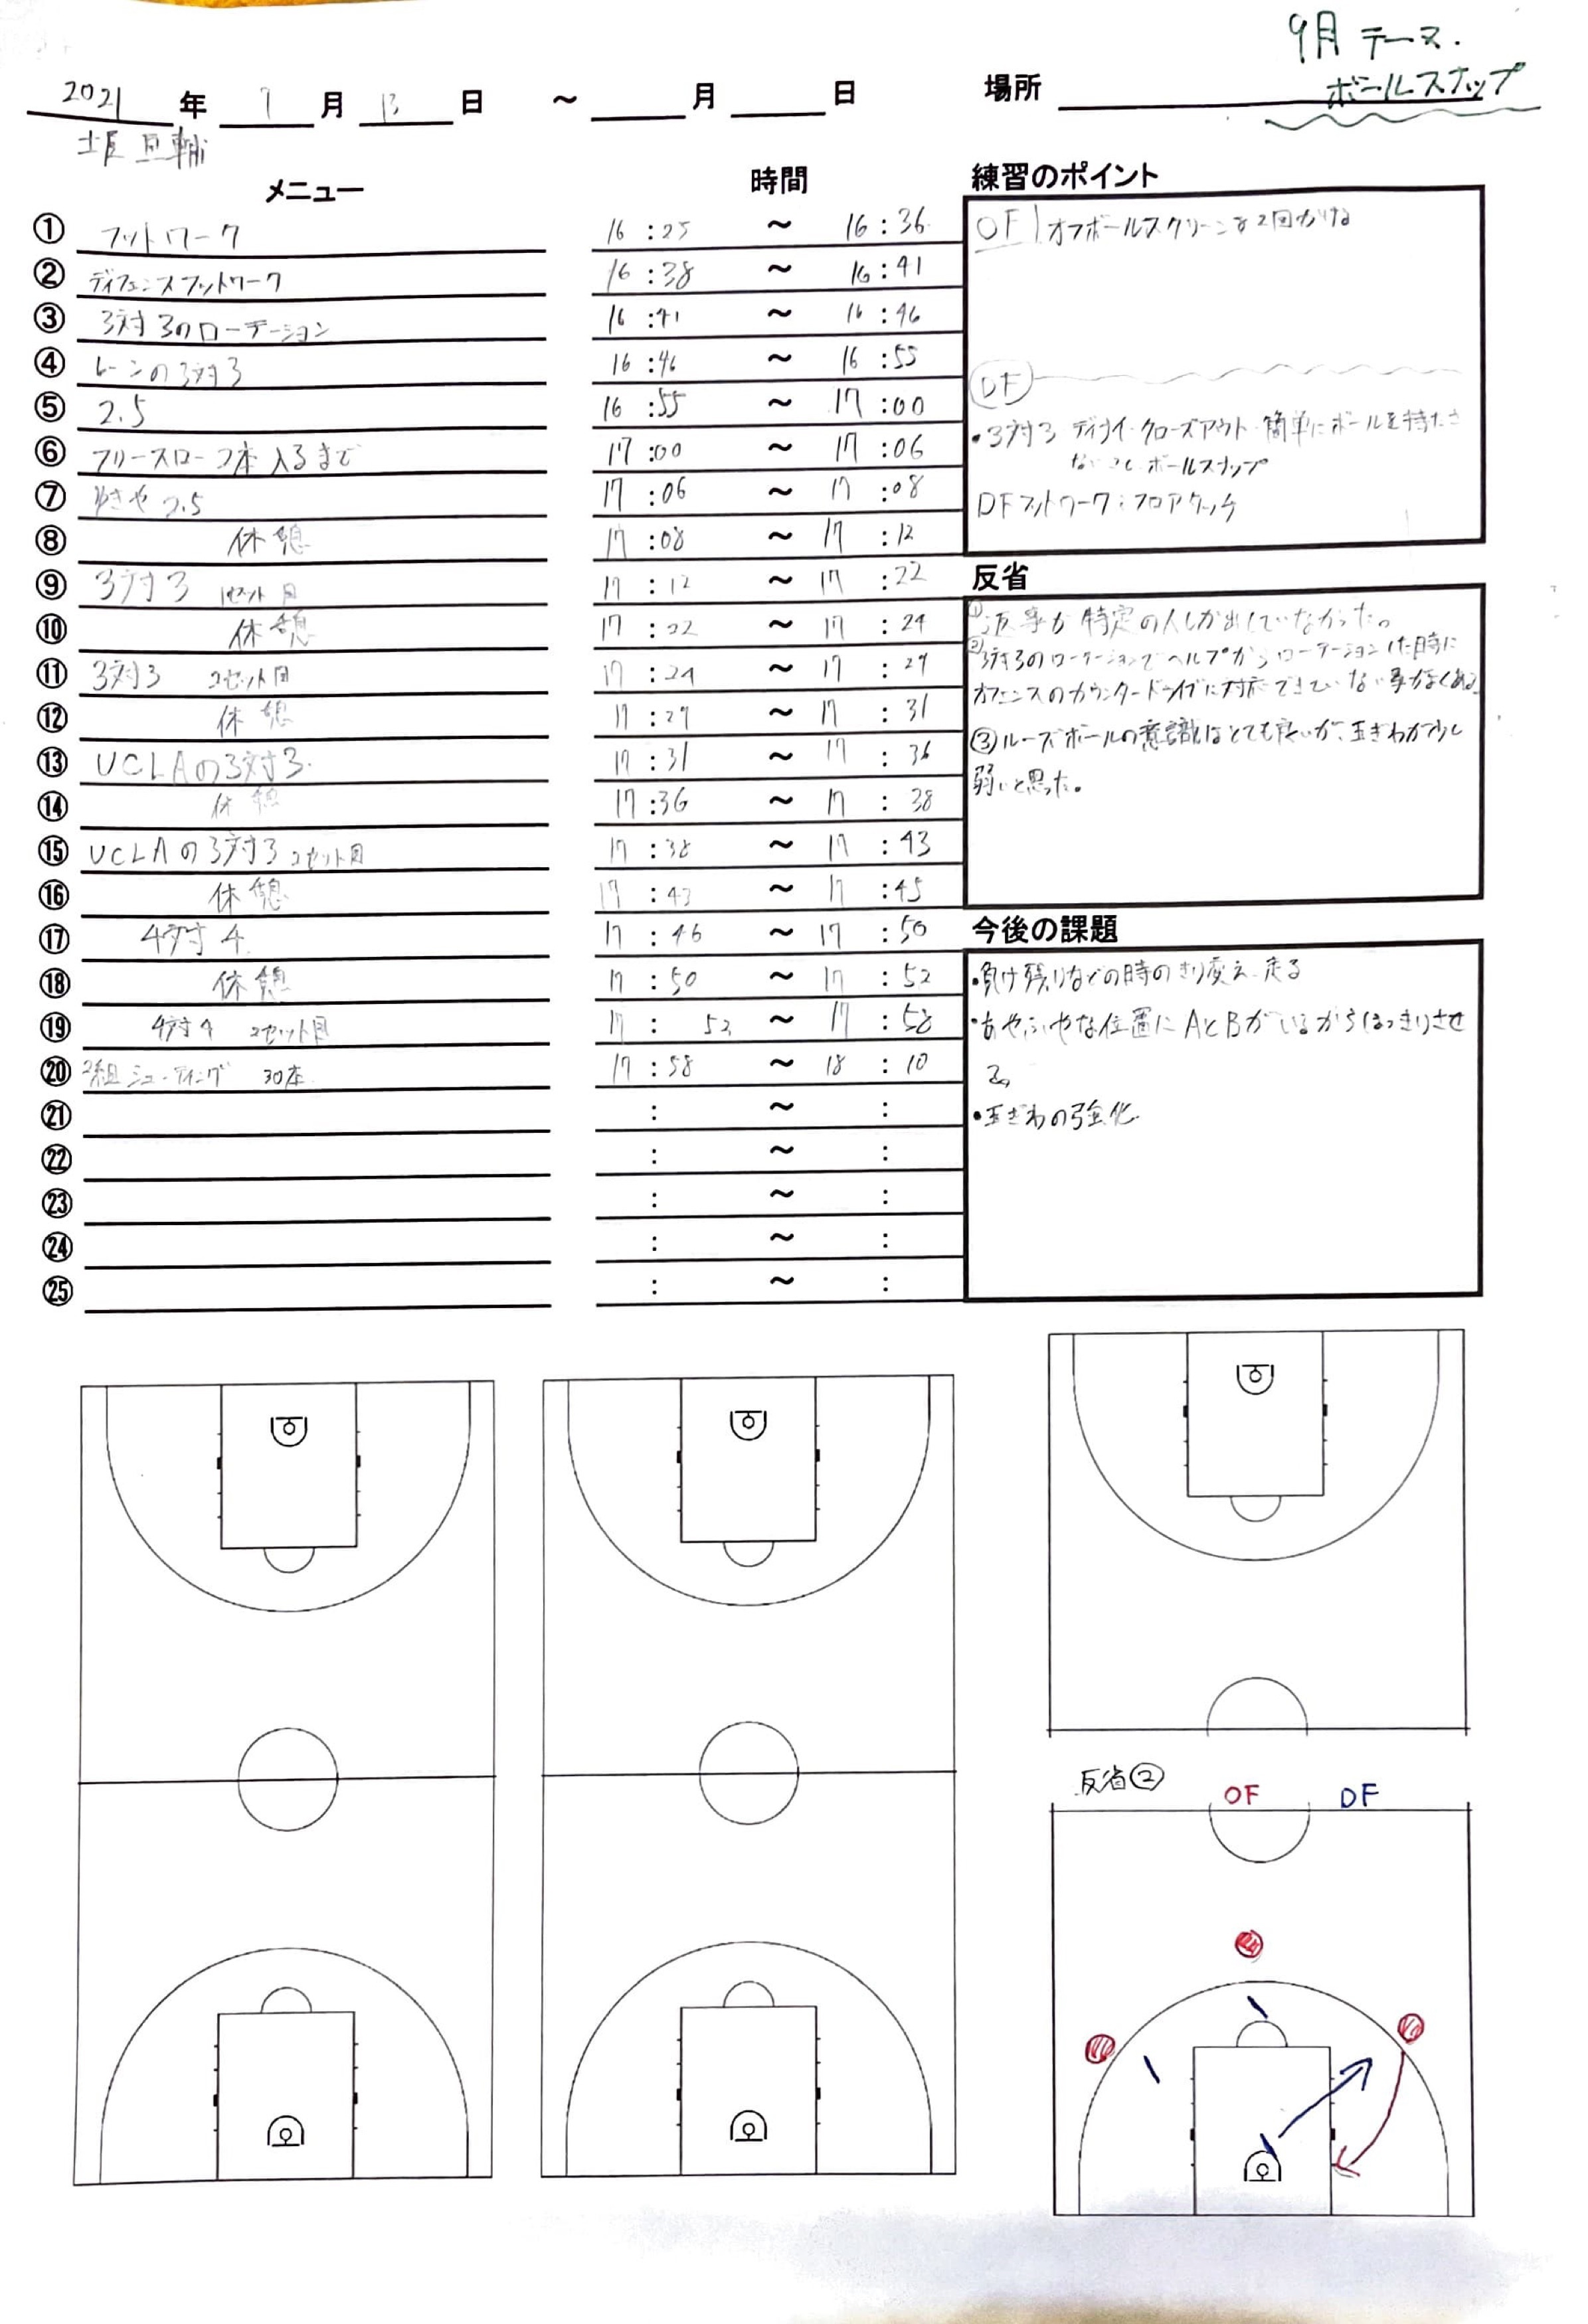 9月 テーマ.
ボールスナップ
2021 年 9 月 13 日 ～ 月 日 場所
メニュー 時間
① フットワーク 16:25 ～ 16:36
② ディフェンスフットワーク 16:38 ～ 16:41
③ 3対3のローテーション 16:41 ～ 16:46
④ レーンの3対3 16:46 ～ 16:55
⑤ 2.5 16:55 ～ 17:00
⑥ フリースロー2本入るまで 17:00 ～ 17:06
⑦ 2.5 17:06 ～ 17:08
⑧ 休憩 17:08 ～ 17:12
⑨ 3対3 1セット目 17:12 ～ 17:22
⑩ 休憩 17:22 ～ 17:24
⑪ 3対3 2セット目 17:24 ～ 17:29
⑫ 休憩 17:29 ～ 17:31
⑬ UCLAの3対3 17:31 ～ 17:36
⑭ 休憩 17:36 ～ 17:38
⑮ UCLAの3対3 2セット目 17:38 ～ 17:43
⑯ 休憩 17:43 ～ 17:45
⑰ 4対4 17:46 ～ 17:50
⑱ 休憩 17:50 ～ 17:52
⑲ 4対4 2セット目 17:52 ～ 17:58
⑳ シューティング 30本 17:58 ～ 18:10
㉑ : ～ :
㉒ : ～ :
㉓ : ～ :
㉔ : ～ :
㉕ : ～ :
練習のポイント
OF オフボールスクリーンを2回かける
DF
・3対3 ディナイ・クローズアウト・簡単にボールを持たさ
ないこと、ボールスナップ
DFフットワーク:フロアタッチ
反省
①返事が特定の人しか出していなかった。
②3対3のローテーションでヘルプからローテーションした時に
オフェンスのカウンタードライブに対応できていない事がよくある。
③ルーズボールの意識はとても良いが、玉ぎわが少し
弱いと思った。
今後の課題
・負け残りなどの時のきり変え、走る
・あやふやな位置にAとBがいるからはっきりさせ
る。
・玉ぎわの強化
反省② OF DF